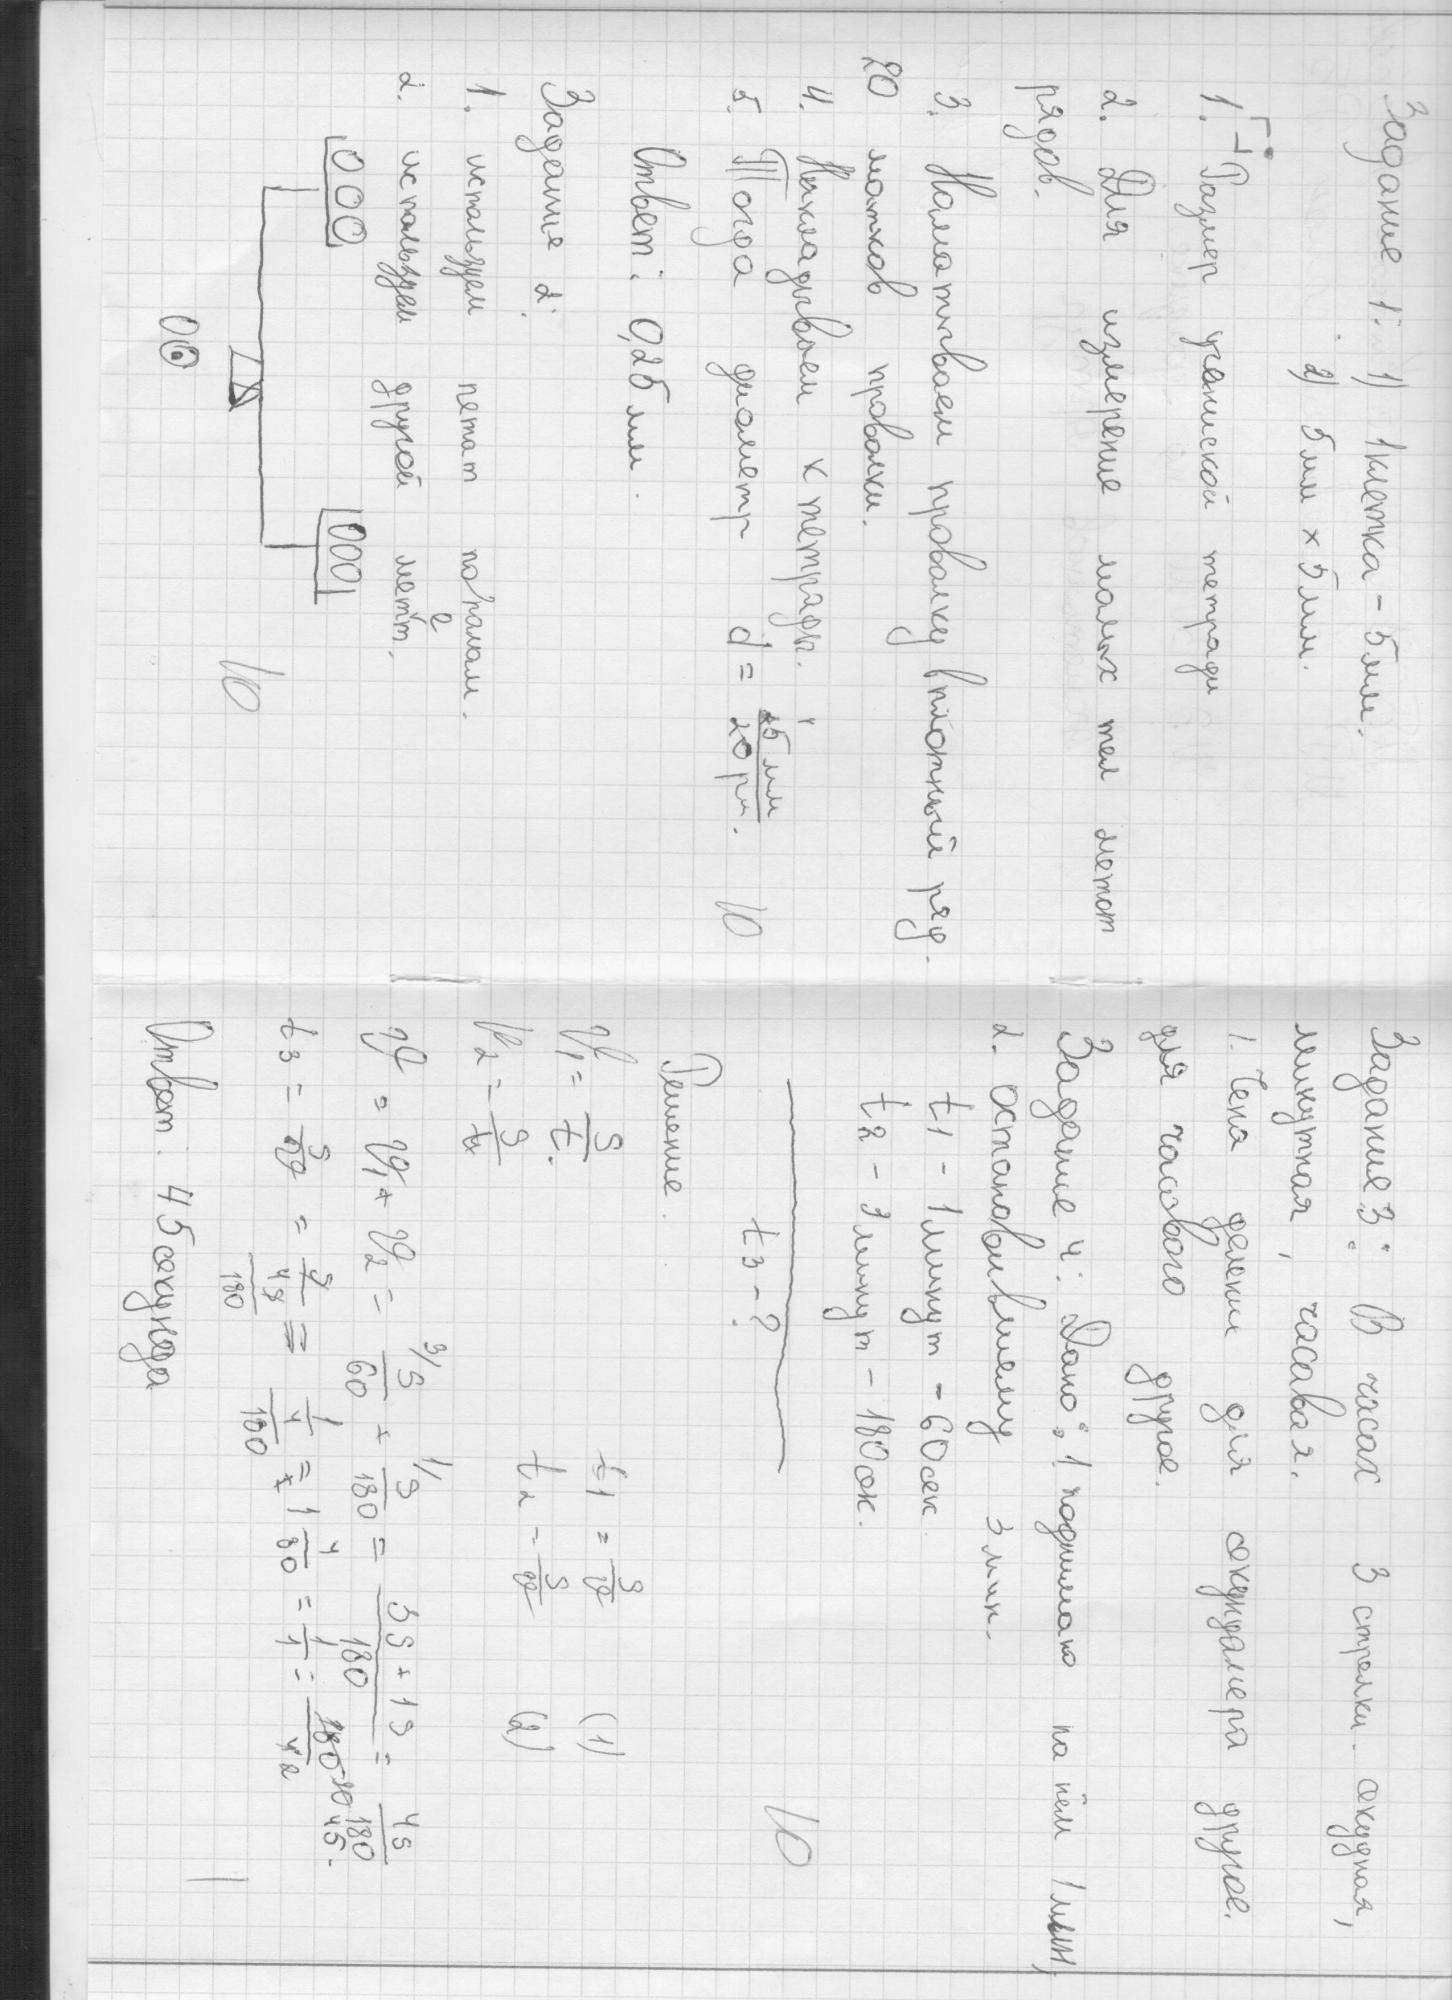 Задание 1: 1) 1клетка - 5мм.
2) 5мм × 5мм.
1. Размер ученической тетради
2. Для измерение малых тел метот
рядов.
3. Наматываем проволку в плотный ряд.
20 мотков проволки.
4. Накладываем к тетради.
5. Тогда диаметр d = 25 мм / 20 рм.
10
Ответ: 0,25 мм.
Задание 2:
1. использум петат попалам.
2. используем другой метт.
е
000 000
00
10
Задание 3: В часах 3 стрелки - секудная,
минутная, часавая.
1. Чена делении для секундамера другое.
для часового другое.
Задание 4: Дано: 1 поднимаю на нём 1мин,
2. остановившемy 3 мин.
t1 - 1 минут - 60 сек
t2 - 3 минут - 180 сек.
t3 - ?
10
Решение.
V1 = S/t. t1 = S/V (1)
V2 = S/t t2 = S/V (2)
V = V1 + V2 = 3/S/60 + 1/S/180 = 3S + 1S/180 = 4S/180
t3 = S/V = S/4S/180 = 1/4/180 = 1 4/180 = 1/1 = 180/4 45.
Ответ: 45 секунда
1